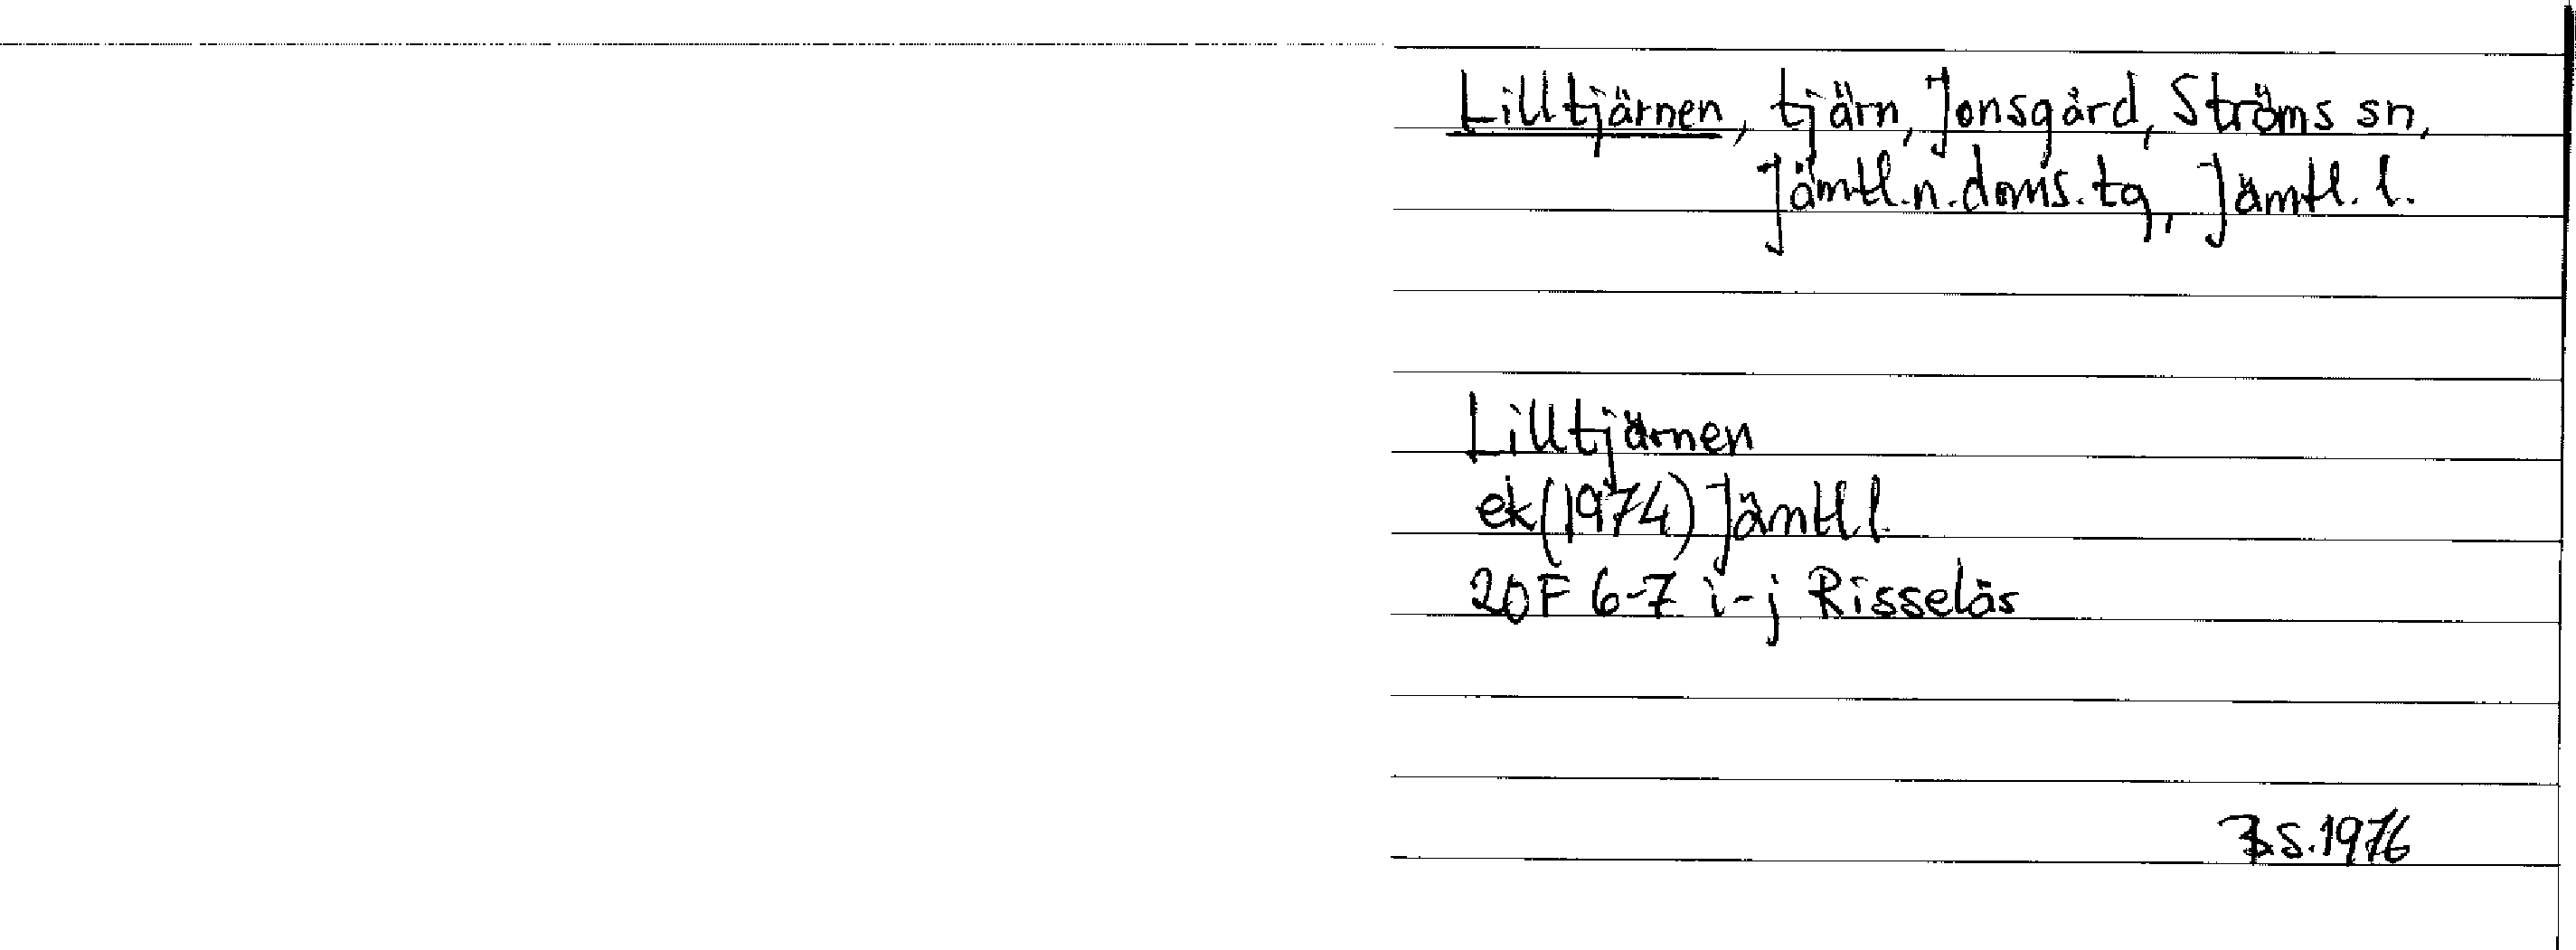 Lilltjärnen, tjärn, Jonsgård, Ströms sn,
Jämtl.n.doms.tg, Jämtl. l.
Lilltjärnen
ek(1974) Jämtl.l.
20F 6-7 i-j Risselås
1976